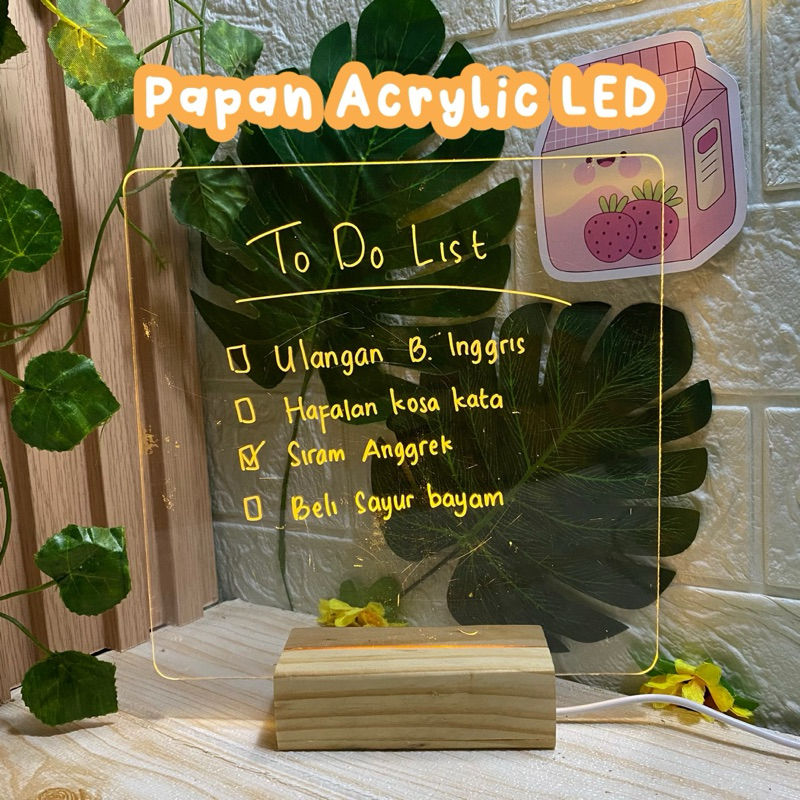 Papan Acrylic LED
To Do List
Ulangan B. Inggris
Hafalan kosa kata
Siram Anggrek
Beli Sayur bayam